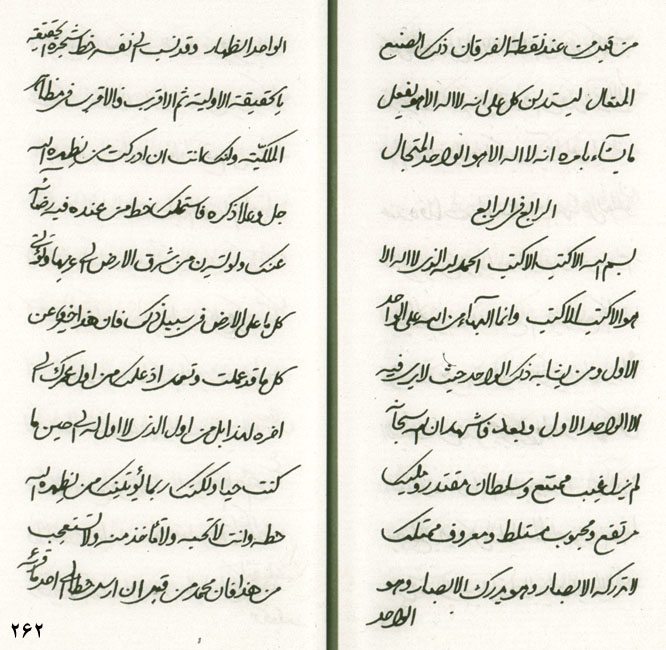 من قبل من عند نقطة الفرقان ذلك الصنيع
المتعال ليستدلن كل على انه لا اله الا هو يفعل
ما يشاء بامره انه لا اله الا هو الواحد المتجال
الرابع فى الرابع
بسم الله الاكتب الاكتب الحمد لله الذى لا اله الا
هو الاكتب الاكتب وانما البهاء من الله على الواحد
الاول ومن يشابه ذلك الواحد حيث لا يرى فيه
الا الواحد الاول وبعد فاشهد ان الله سبحانه
لم يزل غيب ممتنع وسلطان مقتدر ومليك
مرتفع ومحبوب متسلط ومعروف ممتلك
لا تدركه الابصار وهو يدرك الابصار وهو
الواحد
الواحد الظهار وقد نسب الى نفسه خط شجرة الحقيقة
بالحقيقة الاولية ثم الاقرب فالاقرب فى مظاهر
الملكية ولئنك انت ان ادركت من يظهره الله
جل وعلا ذكره فاستملك خط من عنده فيه رضائه
عنك ولو تسيرن من شرق الارض الى غربها وتؤتى
كل ما على الارض فى سبيل ذلك فان هذا خير عن
كل ما قد عملت وتعمل اذ عملك من اول عمرك الى
اخره لهذا بل من اول الذى لا اول له الى حين ما
كنت حيا ولكنك ربما يؤتينك من يظهره الله
خطه وانت لا تحبه ولا تأخذ منه ولا تستعجب
من هذا فان محمد من قبل ان ارسل خطا الى احد ما قرئه
۲۶۲